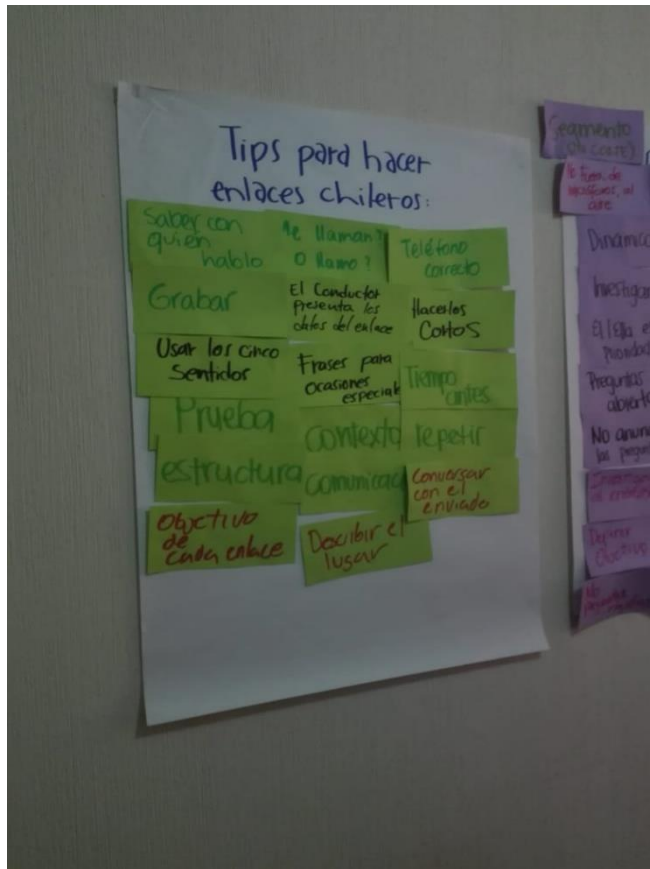 Tips para hacer
enlaces chileros:
Saber con
quien
hablo
Me llaman?
O llamo?
Teléfono
correcto
Grabar
El Conductor
presenta los
datos del enlace
Hacerlos
Cortos
Usar los cinco
Sentidos
Frases para
ocasiones
especial
Tiempo
antes
Prueba
contexto
repetir
estructura
comunicac
Conversar
con el
enviado
Objetivo
de
cada enlace
Describir el
lugar
Segmento
aire
Dinámico
Investiga
El/Ella e
priorida
Preguntas
abierta
No anun
las pregun
Definir
Objetivo
No